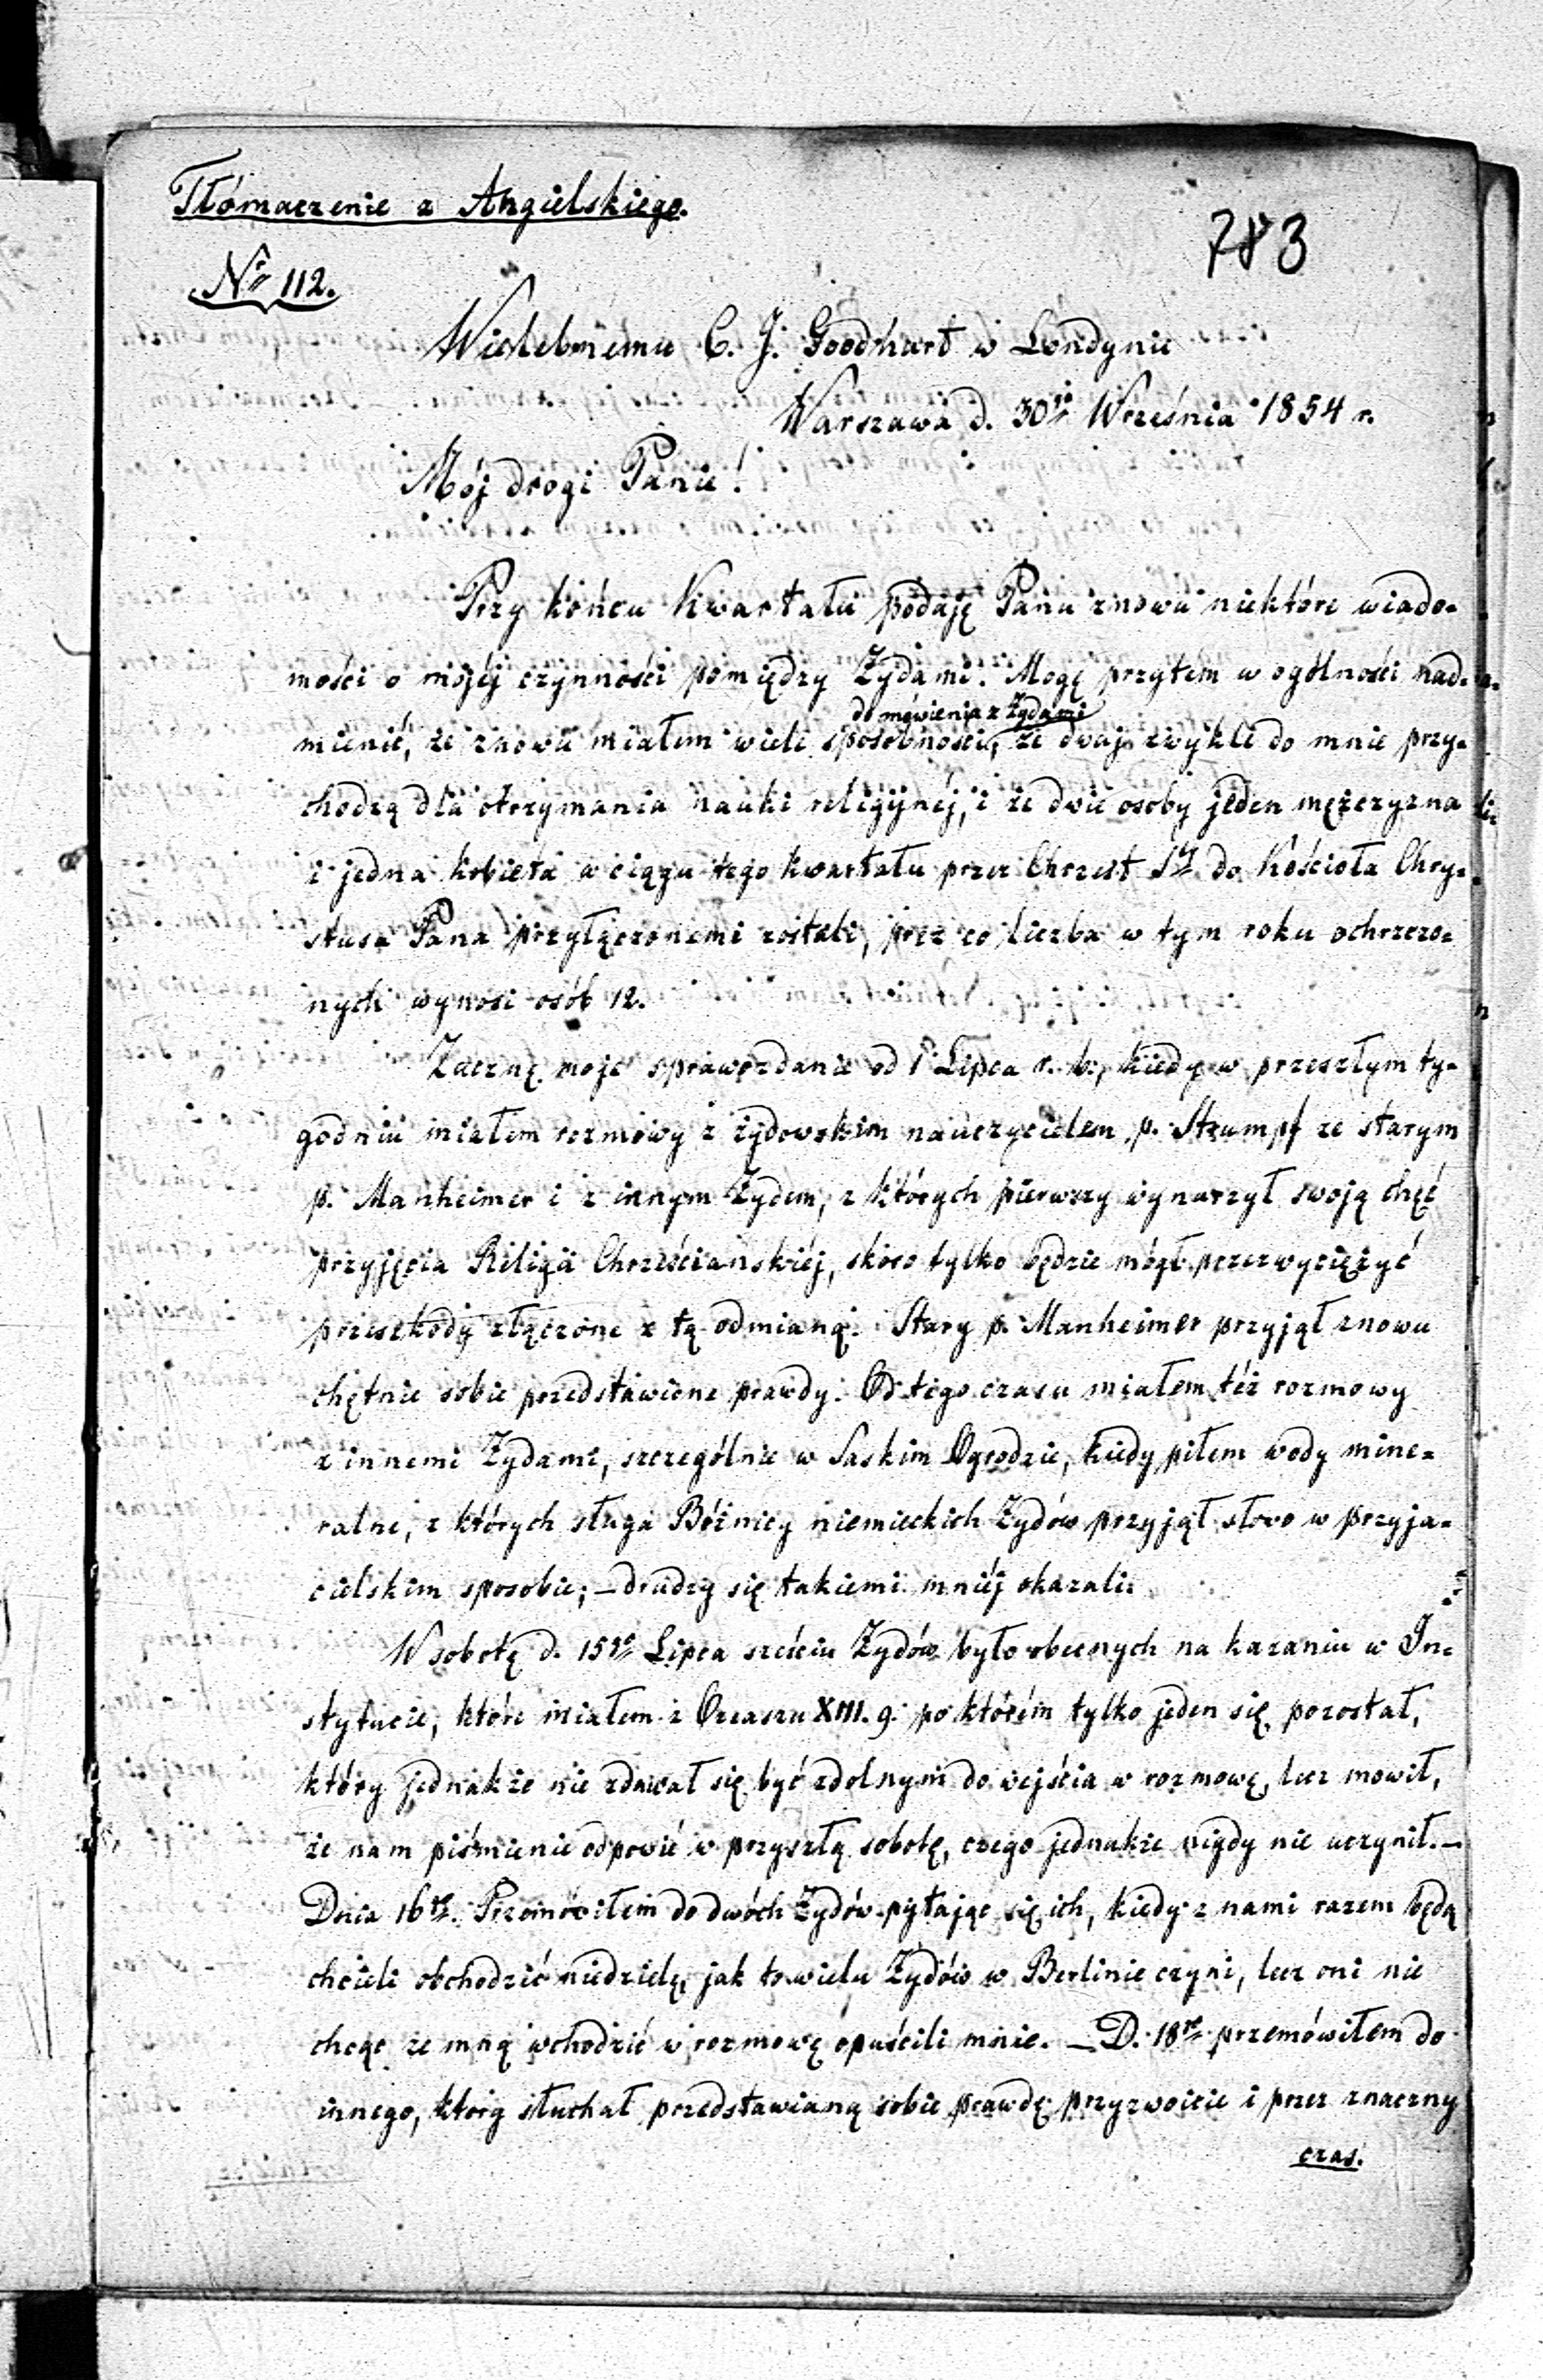 Tłómaczenie z Angielskiego.
783
Nr 112.
Wielebnemu C. J. Goodhart w Londynie
Warszawa d. 30go Września 1854 r.
Mój drogi Panie!
Przy końcu Kwartału podaję Panu znowu niektóre wiado-
mości o mojéj czynności pomiędzy Żydami. Mogę przytem w ogólności nad-
do mówienia z Żydami
mienić, że znowu miałem wiele sposobności, że dwaj zwykle do mnie przy-
chodzą dla otrzymania nauki religijnéj, i że dwie osoby jeden mężczyzna
i jedna kobieta w ciągu tego kwartału przez Chrzest Sty do Kościoła Chry-
stusa Pana przyłączonemi zostali, przez co liczba w tym roku ochrzczo-
nych wynosi osób 12.
Zacznę moje sprawozdanie od 1 Lipca r. b., kiedy w przeszłym ty-
godniu miałem rozmowy z żydowskim nauczycielem p. Stumpf ze starym
p. Manheimer i z innym Żydem, z których pierwszy wynurzył swoją chęć
przyjęcia Religii Chrześciańskiéj, skoro tylko będzie mógł przezwyciężyć
przeszkody złączone z tą odmianą. Stary p. Manheimer przyjął znowu
chętnie sobie przedstawione prawdy. Od tego czasu miałem téż rozmowy
z innemi Żydami, szczególnie w Saskim Ogrodzie, kiedy piłem wody mine-
ralne, z których sługa Bóżnicy niemieckich Żydów przyjął słowo w przyja-
cielskim sposobie; – drudzy się takiemi mniéj okazali.
W sobotę d. 15go Lipca sześciu Żydów było obecnych na kazaniu w In-
stytucie, które miałem z Ozeaszu XIII. 9. po którém tylko jeden się pozostał,
który jednakże nie zdawał się być zdolnym do wejścia w rozmowę, lecz mowił,
że nam piśmienie odpowié w przyszłą sobotę, czego jednakże nigdy nie uczynił. –
Dnia 16go. Przemówiłem do dwóch Żydów pytając się ich, kiedy z nami razem będą
chcieli obchodzić niedzielę, jak to wielu Żydów w Berlinie czyni, lecz oni nie
chcąc ze mną wchodzić w rozmowę opuścili mnie. – D. 18go przemówiłem do
innego, który słuchał przedstawianą sobie prawdę przyzwoicie i przez znaczny
czas.